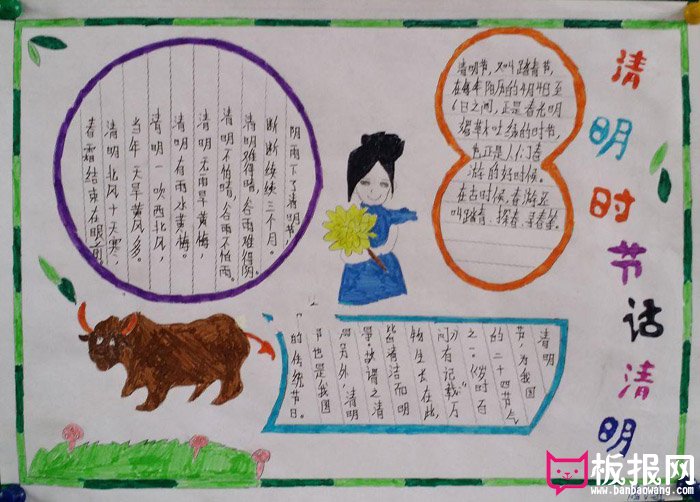 清明时节话清明
阴雨下了清明节，
断断续续三个月。
清明难得晴，谷雨难得阴。
清明不怕晴，谷雨不怕雨。
清明无雨旱黄梅，
清明有雨水黄梅。
清明一吹西北风，
当年天旱黄风多。
清明北风十天寒，
春霜结束在眼前
清明节，又叫踏青节，
在每年阳历的4月4日至
6日之间，正是春光明
媚草木吐绿的时节，
也正是人们春
游的好时候。
在古时候，春游又
叫踏青、探春、寻春等。
清明
节，为我国
的二十四节气
之一：《岁时百
问》有记载“万
物生长在此，
皆清洁而明
故谓之清
明另外，清明
节也是我国
的传统节日。
板报网
www.banbaowang.com